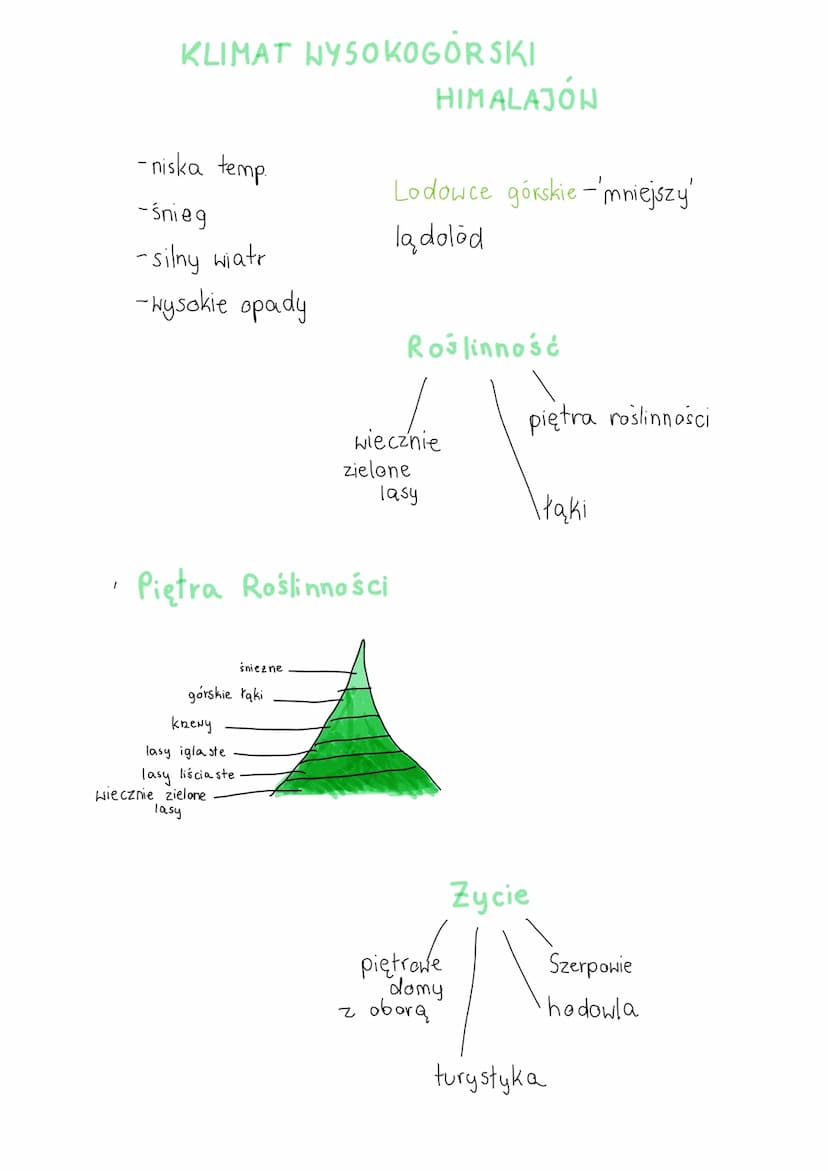 KLIMAT WYSOKOGÓRSKI
HIMALAJÓW
-niska temp.
-śnieg
-silny wiatr
-wysokie opady
Lodowce górskie -'mniejszy'
lądolód
Roślinność
wiecznie
zielone
lasy
łąki
piętra roślinności
Piętra Roślinności
śnieżne
górskie łąki
krzewy
lasy iglaste
lasy liściaste
wiecznie zielone
lasy
Życie
piętrowe
domy
z oborą
turystyka
hodowla
Szerpowie